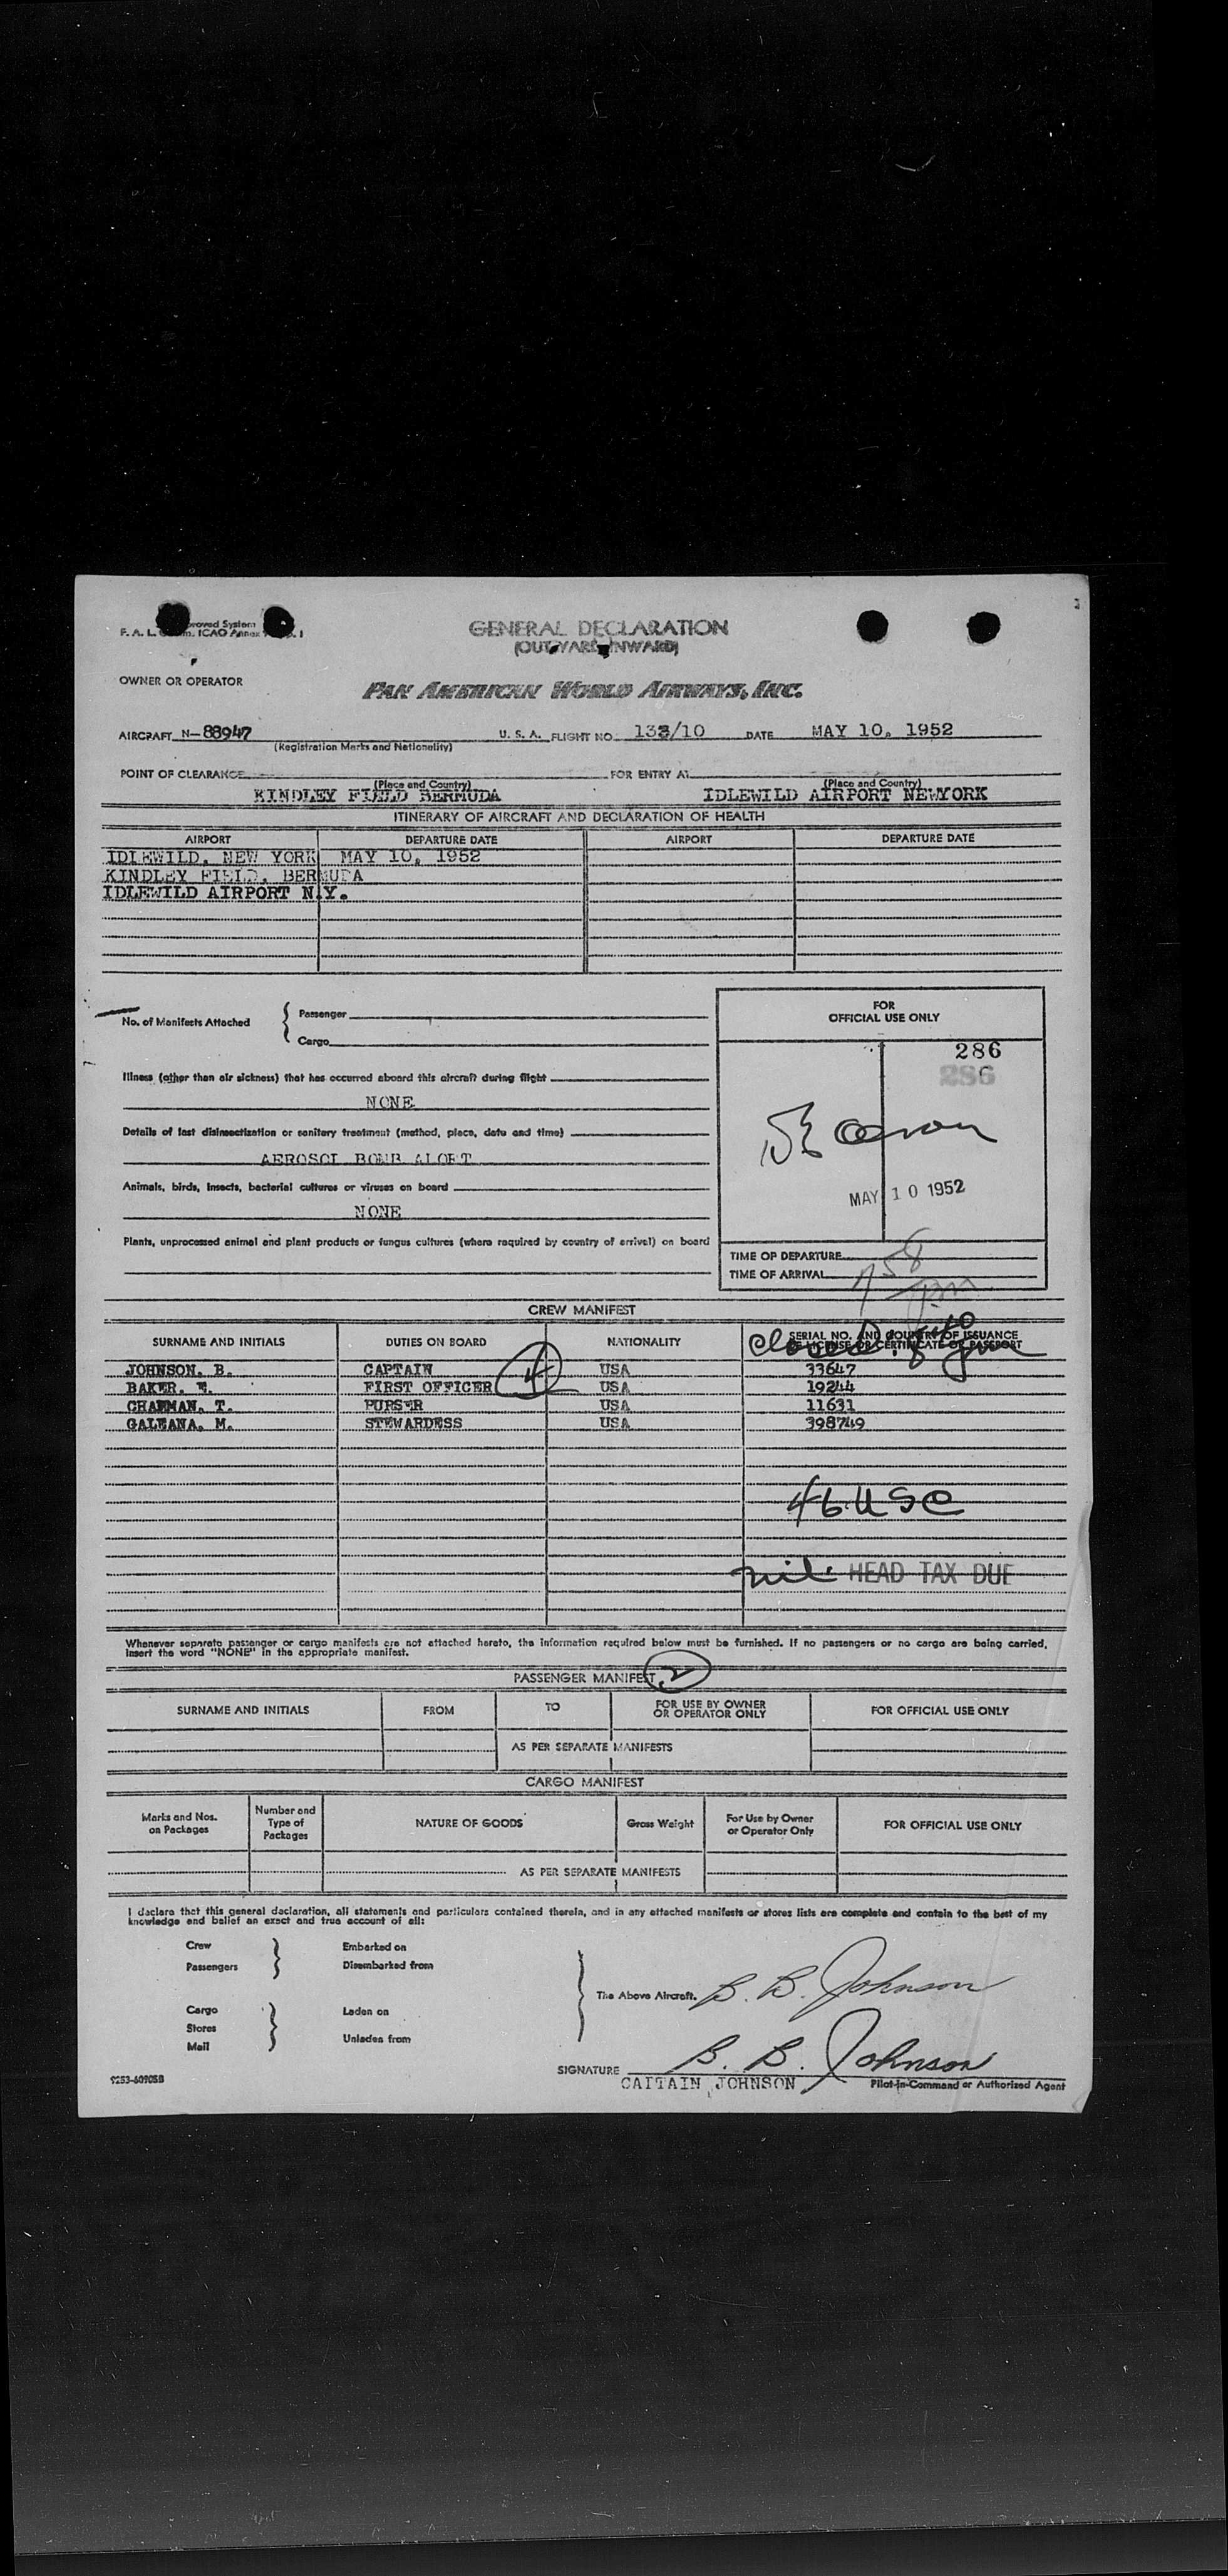 F. A. L. ICAO Annex
GENERAL DECLARATION
(OUTWARD-INWARD)
OWNER OR OPERATOR
PAN AMERICAN WORLD AIRWAYS, INC.
AIRCRAFT N-88947 U. S. A. FLIGHT NO. 133/10 DATE MAY 10, 1952
(Registration Marks and Nationality)
POINT OF CLEARANCE FOR ENTRY AT
(Place and Country) (Place and Country)
KINDLEY FIELD BERMUDA IDLEWILD AIRPORT NEWYORK
ITINERARY OF AIRCRAFT AND DECLARATION OF HEALTH
AIRPORT DEPARTURE DATE AIRPORT DEPARTURE DATE
IDLEWILD, NEW YORK MAY 10, 1952
KINDLEY FIELD, BERMUDA
IDLEWILD AIRPORT N.Y.
No. of Manifests Attached { Passenger
Cargo
Illness (other than air sickness) that has occurred aboard this aircraft during flight
NONE
Details of last disinsectization or sanitary treatment (method, place, date and time)
AEROSOL BOMB ALOFT
Animals, birds, insects, bacterial cultures or viruses on board
NONE
Plants, unprocessed animal and plant products or fungus cultures (where required by country of arrival) on board
FOR
OFFICIAL USE ONLY
286
286
MAY 10 1952
TIME OF DEPARTURE
TIME OF ARRIVAL 758 pm
CREW MANIFEST
SURNAME AND INITIALS DUTIES ON BOARD NATIONALITY SERIAL NO. AND COUNTRY OF ISSUANCE
OF LICENSE OR CERTIFICATE OR PASSPORT
closed
JOHNSON, B. CAPTAIN USA 33647
4
BAKER, E. FIRST OFFICER USA 19244
CHAPMAN, T. PURSER USA 11631
GALEANA, M. STEWARDESS USA 398749
46 USC
nil HEAD TAX DUE
Whenever separate passenger or cargo manifests are not attached hereto, the information required below must be furnished. If no passengers or no cargo are being carried,
insert the word "NONE" in the appropriate manifest.
PASSENGER MANIFEST 2
SURNAME AND INITIALS FROM TO FOR USE BY OWNER OR OPERATOR ONLY FOR OFFICIAL USE ONLY
AS PER SEPARATE MANIFESTS
CARGO MANIFEST
Marks and Nos. on Packages Number and Type of Packages NATURE OF GOODS Gross Weight For Use by Owner or Operator Only FOR OFFICIAL USE ONLY
AS PER SEPARATE MANIFESTS
I declare that this general declaration, all statements and particulars contained therein, and in any attached manifests or stores lists are complete and contain to the best of my
knowledge and belief an exact and true account of all:
Crew Embarked on
Passengers Disembarked from
The Above Aircraft. B. B. Johnson
Cargo Laden on
Stores
Mail Unladen from
SIGNATURE B. B. Johnson
CAITAIN JOHNSON Pilot-in-Command or Authorized Agent
9253-60905B